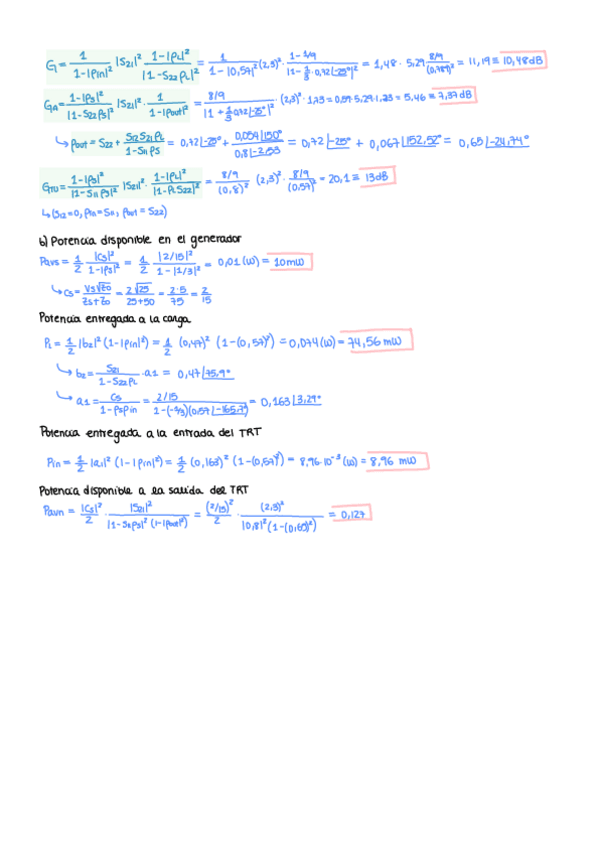 G = 1/(1-|ρin|²) |S21|² (1-|ρL|²)/(|1-S22 ρL|²) = 1/(1-|0,57|²) (2,3)² · (1-1/9)/(|1-1/3·0,72∟-25°|²) = 1,48 · 5,29 (8/9)/(0,789)² = 11,19 ≡ 10,48 dB
GA = (1-|ρs|²)/(|1-S22 ρs|²) |S21|² · 1/(1-|ρout|²) = (8/9)/(|1+1/3 0,72∟-25°|²) · (2,3)² · 1,73 = 0,57·5,29·1,23 = 5,46 ≡ 7,37 dB
↳ ρout = S22 + (S12 S21 ρL)/(1-S11 ρs) = 0,72∟-25° + (0,054∟150°)/(0,8∟-2,53) = 0,72∟-25° + 0,067∟152,52° = 0,65∟-24,74°
GTU = (1-|ρs|²)/(|1-S11 ρs|²) |S21|² · (1-|ρL|²)/(|1-ρL S22|²) = (8/9)/(0,8)² (2,3)² · (8/9)/(0,57)² = 20,1 ≡ 13dB
↳ (S12=0, ρin=S11, ρout=S22)
b) Potencia disponible en el generador
Pavs = 1/2 |Cs|²/(1-|ρs|²) = 1/2 |2/15|²/(1-|1/3|²) = 0,01 (W) = 10mW
↳ Cs = Vs√Zo/(Zs+Zo) = 2√25/(25+50) = 2·5/75 = 2/15
Potencia entregada a la carga
PL = 1/2 |b2|² (1-|ρL|²) = 1/2 (0,47)² (1-(0,57)²) = 0,074 (W) = 74,56 mW
↳ b2 = S21/(1-S22 ρL) · a1 = 0,47∟75,9°
↳ a1 = Cs/(1-ρs ρin) = (2/15)/(1-(-1/3)(0,57∟-165,7°)) = 0,163∟3,29°
Potencia entregada a la entrada del TRT
Pin = 1/2 |a1|² (1-|ρin|²) = 1/2 (0,163)² (1-(0,57)²) = 8,96·10⁻³ (W) = 8,96 mW
Potencia disponible a la salida del TRT
Pavn = |Cs|²/2 · |S21|²/(|1-S11 ρs|² (1-|ρout|²)) = (2/15)²/2 · (2,3)²/(|0,8|² (1-(0,65)²)) = 0,127